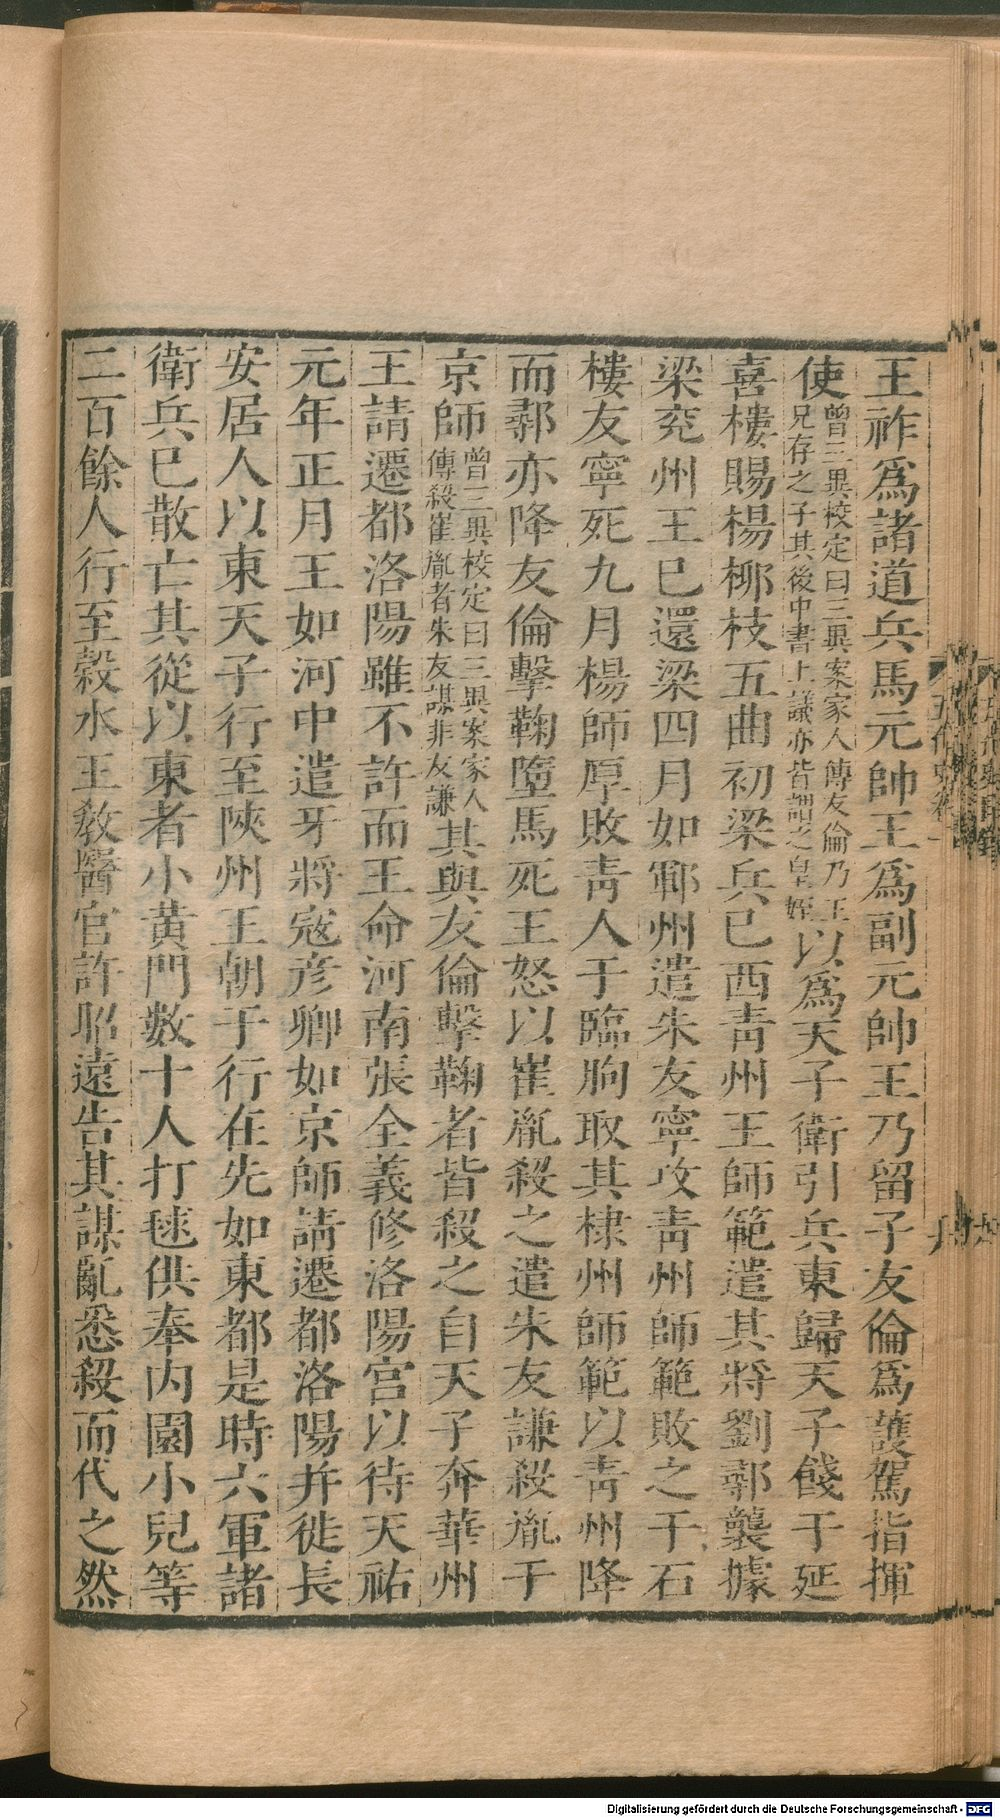 王祚爲諸道兵馬元帥王爲副元帥王乃留子友倫爲護駕指揮
使曾三異校定曰三異案家人傳友倫乃王兄存之子其後中書上議亦皆謂之皇姪以爲天子衛引兵東歸天子餞于延
喜樓賜楊柳枝五曲初梁兵已西青州王師範遣其將劉鄩襲據
梁兖州王已還梁四月如鄆州遣朱友寧攻青州師範敗之于石
樓友寧死九月楊師厚敗青人于臨朐取其棣州師範以青州降
而鄩亦降友倫擊鞠墮馬死王怒以崔胤殺之遣朱友謙殺胤于
京師曾三異校定曰三異案家人傳殺崔胤者朱友謀非友謙其與友倫擊鞠者皆殺之自天子奔華州
王請遷都洛陽雖不許而王命河南張全義修洛陽宮以待天祐
元年正月王如河中遣牙將寇彥卿如京師請遷都洛陽并徙長
安居人以東天子行至陝州王朝于行在先如東都是時六軍諸
衛兵已散亡其從以東者小黃門數十人打毬供奉內園小兒等
二百餘人行至穀水王教醫官許昭遠告其謀亂悉殺而代之然
Digitalisierung gefördert durch die Deutsche Forschungsgemeinschaft - DFG